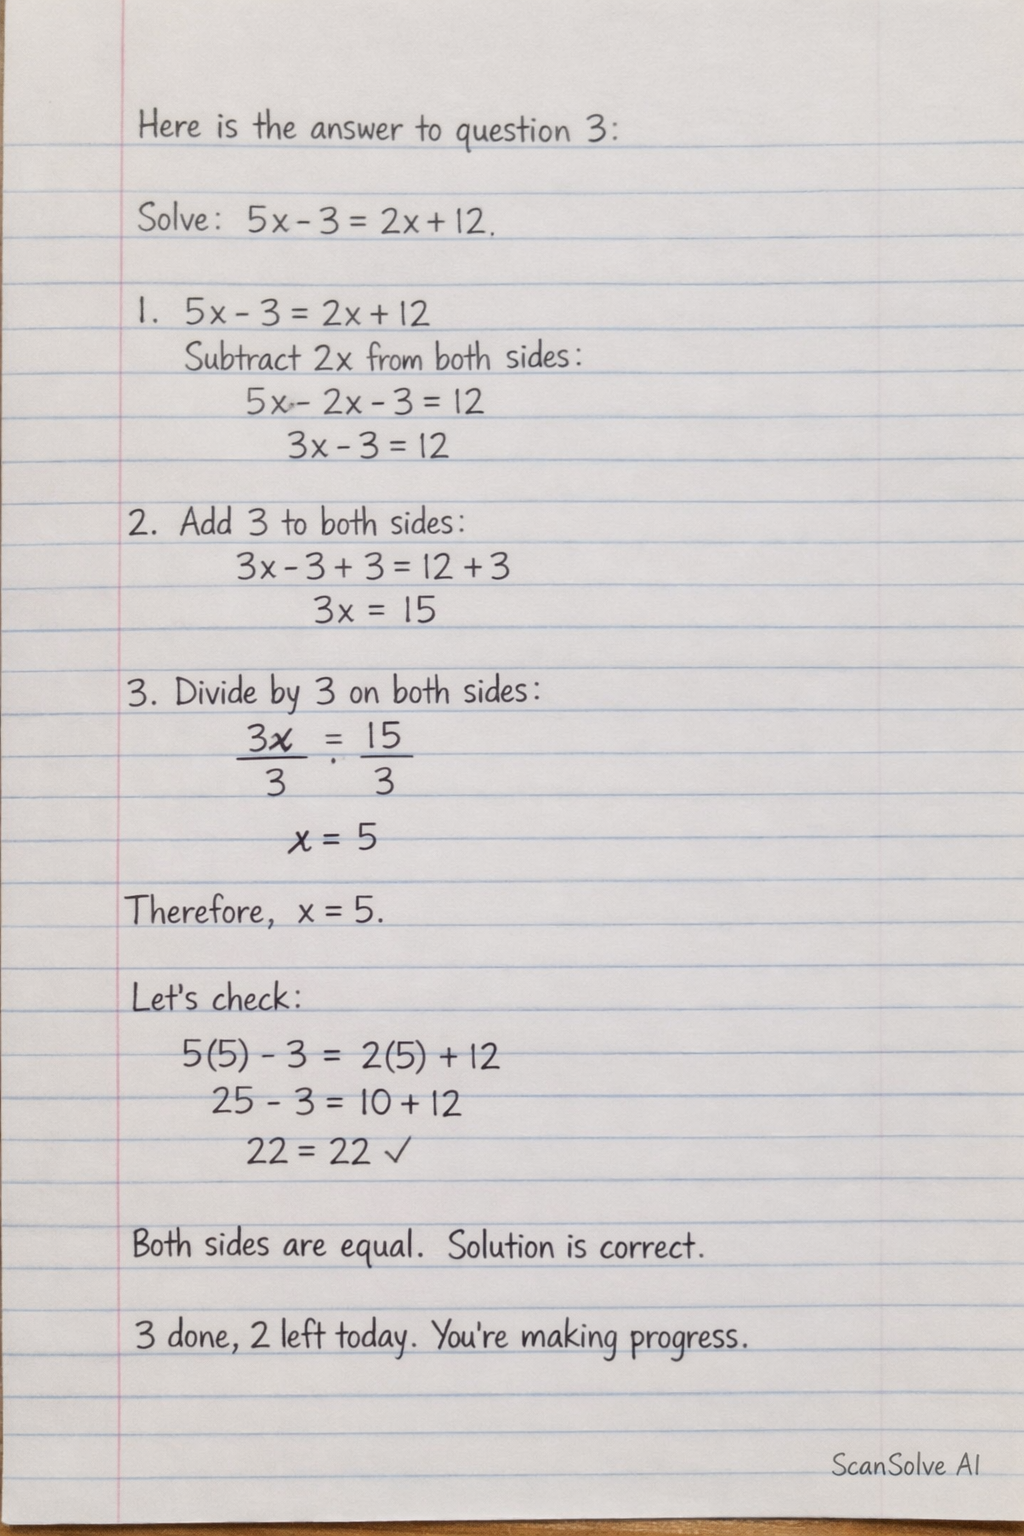 Here is the answer to question 3:
Solve: 5x - 3 = 2x + 12.
1. 5x - 3 = 2x + 12
Subtract 2x from both sides:
5x - 2x - 3 = 12
3x - 3 = 12
2. Add 3 to both sides:
3x - 3 + 3 = 12 + 3
3x = 15
3. Divide by 3 on both sides:
3x = 15
3 3
x = 5
Therefore, x = 5.
Let's check:
5(5) - 3 = 2(5) + 12
25 - 3 = 10 + 12
22 = 22 ✓
Both sides are equal. Solution is correct.
3 done, 2 left today. You're making progress.
ScanSolve AI